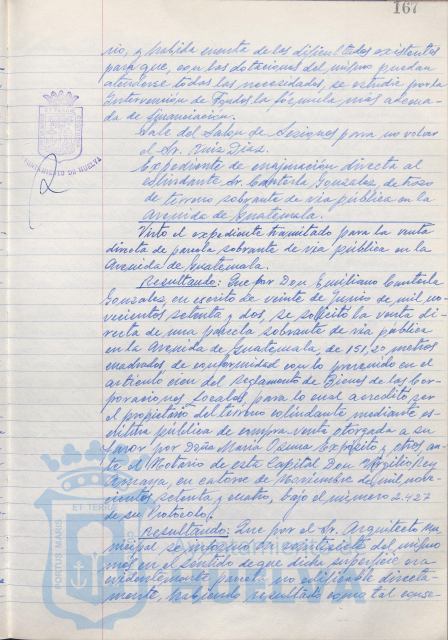 167
rio, y habida cuenta de las dificultades existentes
para que, con las dotaciones del mismo puedan
atenderse todas las necesidades, se estudie por la
Intervención de Fondos la fórmula más adecua-
da de financiación.
Sale del Salón de Sesiones para no volver
el Sr. Ruiz Díaz.
Expediente de enajenación directa al
colindante Sr. Cantería González, de trozo
de terreno sobrante de vía pública en la
Avenida de Guatemala.
Visto el expediente tramitado para la venta
directa de parcela sobrante de vía pública en la
Avenida de Guatemala.
Resultando: Que por Don Emiliano
González, en escrito de veinte de Junio de mil no-
vecientos setenta y dos, se solicitó la venta di-
recta de una parcela sobrante de vía pública
en la Avenida de Guatemala de 151,20 metros
cuadrados de conformidad con lo prevenido en el
artículo cien del Reglamento de Bienes de las Cor-
poraciones Locales, para lo cual acreditó ser
el propietario del terreno colindante mediante es-
critura pública de compra-venta otorgada a su
favor por Doña María Osuna Expósito y otros an-
te el Notario de esta Capital Don Virgilio
Amaya, en catorce de Noviembre de mil nove-
cientos setenta y cuatro, bajo el número 2.427
de su Protocolo.
Resultando: Que por el Sr. Arquitecto Mu-
nicipal se informó en veintisiete del mismo
mes en el sentido de que dicha superficie era
evidentemente parcela no edificable directa-
mente, habiendo resultado como tal conse-
AYUNTAMIENTO DE HUELVA
PORTUS MARIS
ET TERRAE